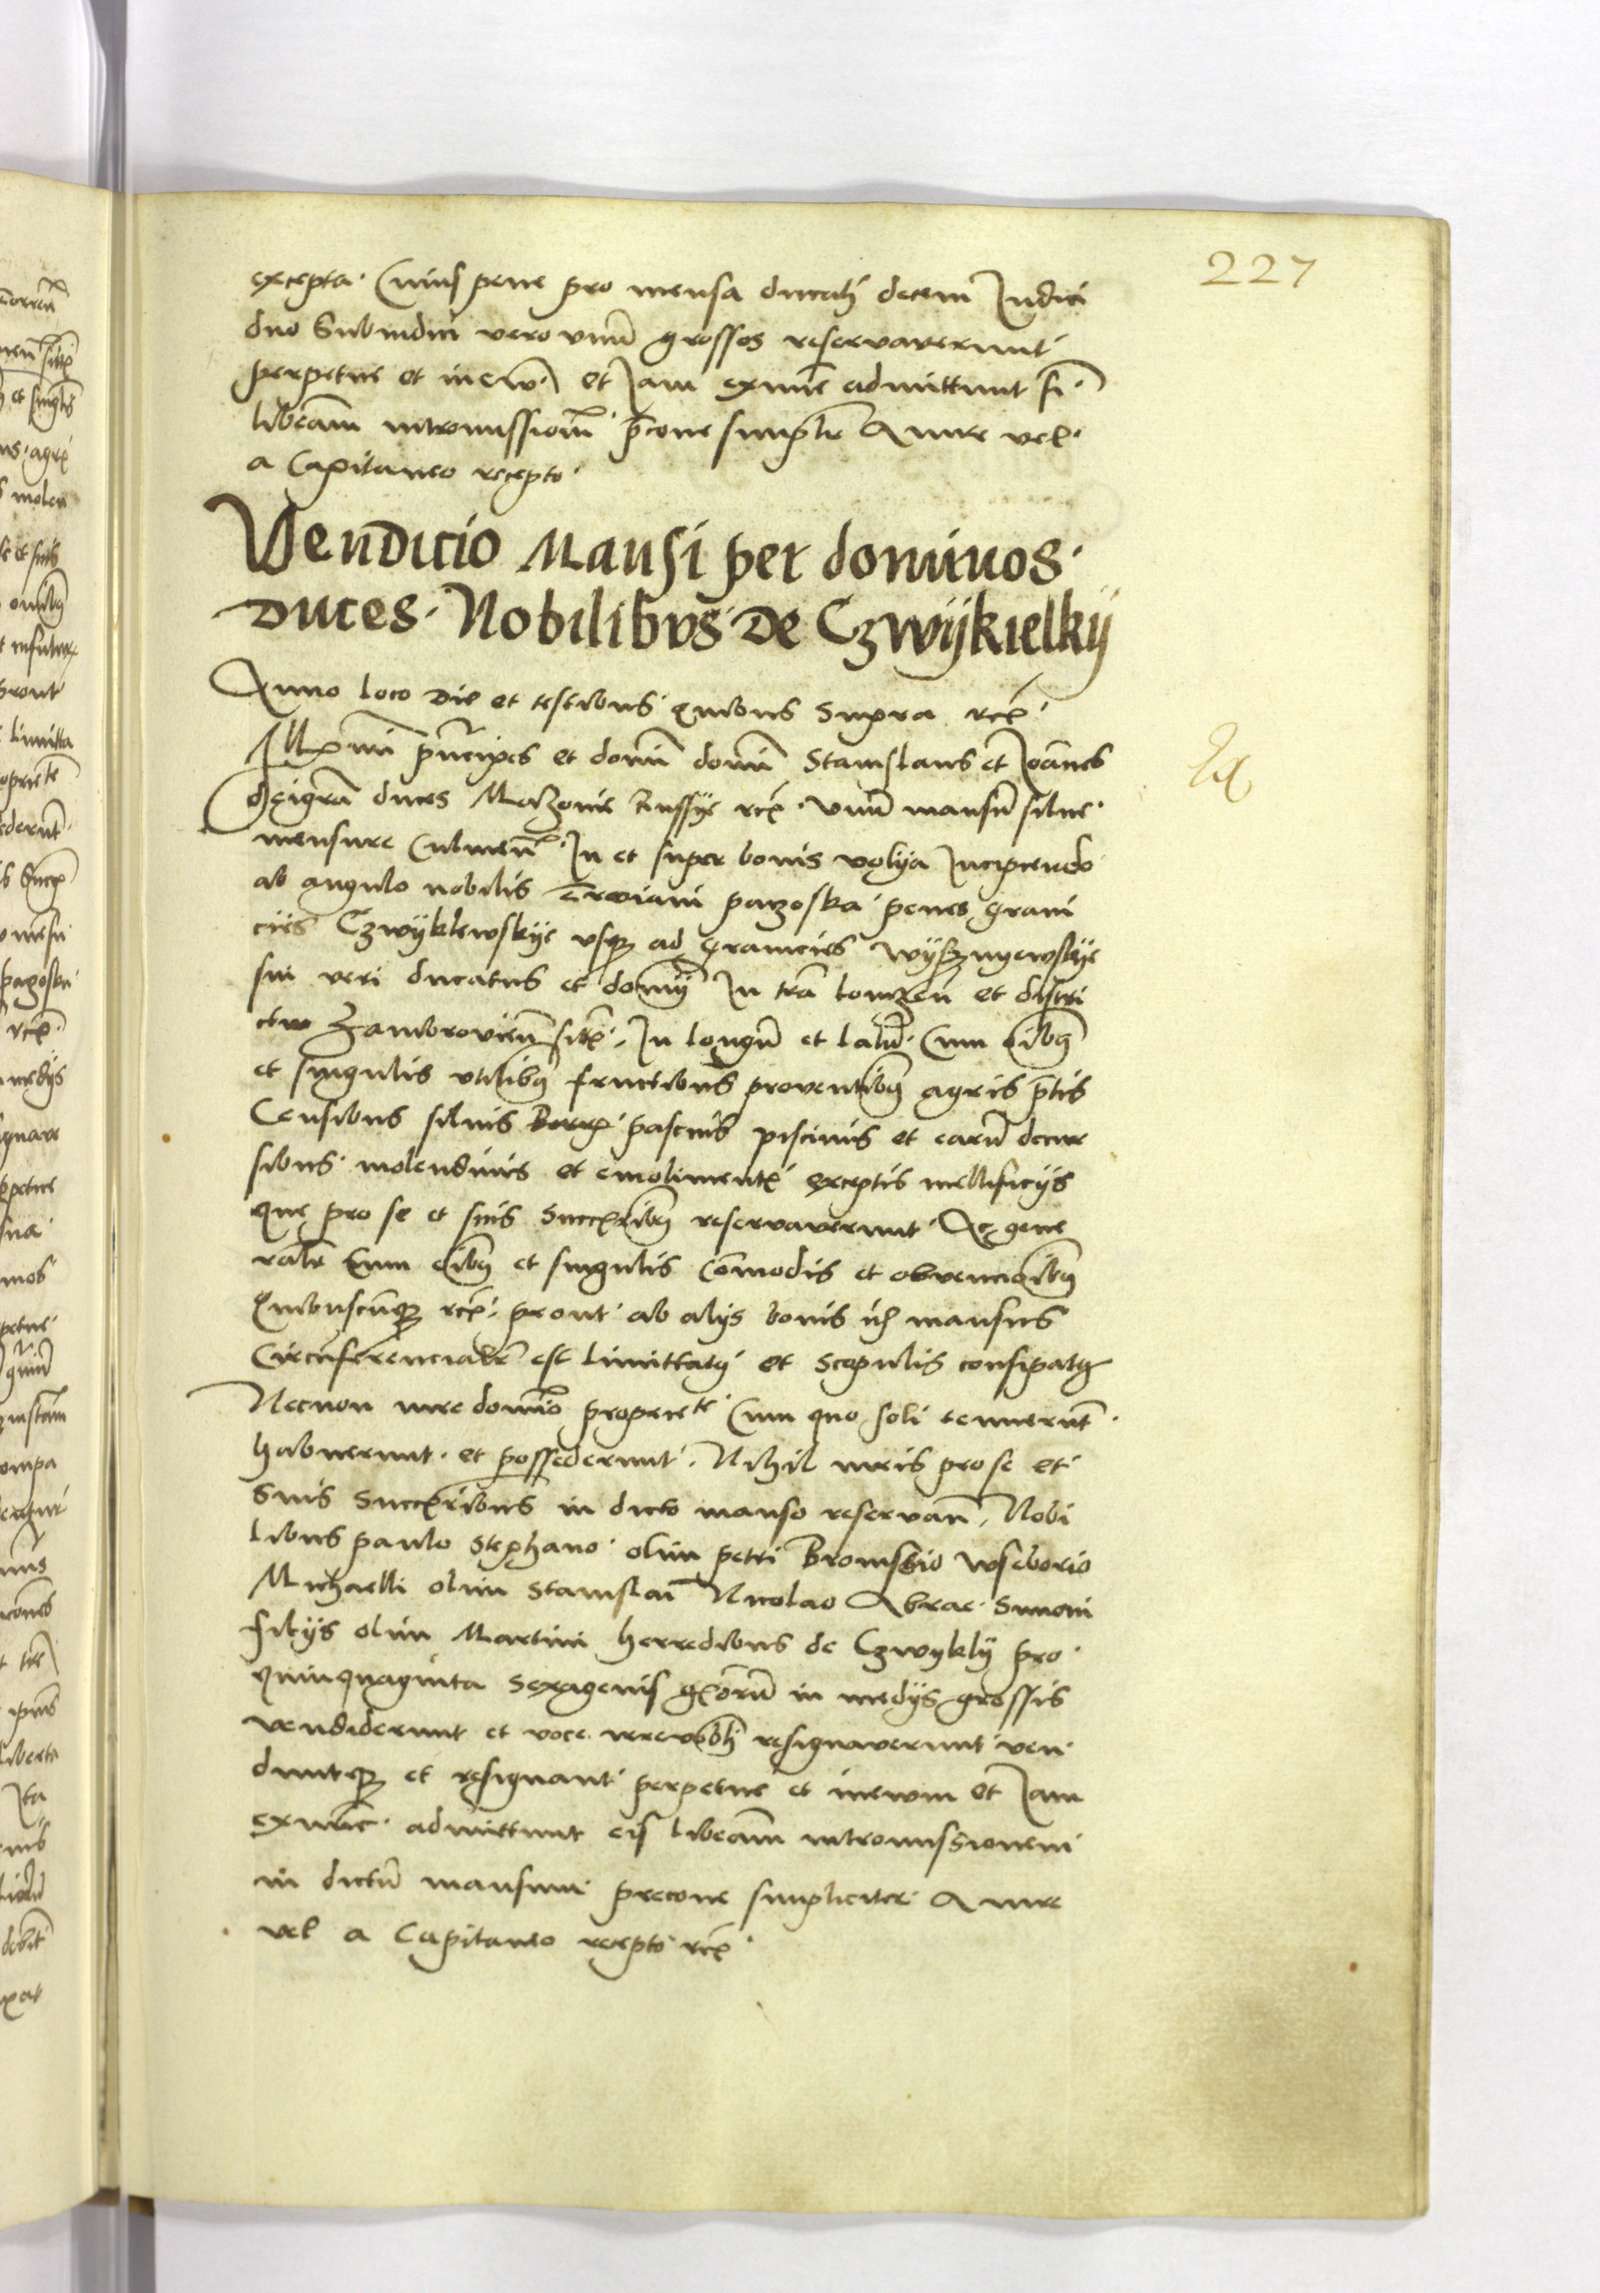 227
excepta. Cuius pene pro mensa ducali decem Iudici
duo Subiudici vero vnum grossos reservaverunt
perpetue et in ewm et Iam exnunc admittunt
liberam intromissionem precone simpliciter A iure vel.
a Capitaneo recepto.
Vendicio Mansi per dominos.
Duces. Nobilibus De Czwijkielkij
Anno loco Die et testibus quibus Supra rcz.
Illmi principes et domini domini Stanislaus et Ioannes
deigra duces Mazovie Russije rcz. vnum mansum silve.
mensure Culmen. In et super bonis volija Incipiendo
ab angulo nobilis panzoska penes grani
cies Czwijklewskije vsque ad granicies
sui veri ducatus et dominij In tra lomzen et distri
ctu Zambrovien sitx. In longum et latum. Cum oibus
et singulis vtilibus fructibus proventibus agris pratis
Censibus silvis Borrx pascuis piscinis et earum decur
sibus. molendinis et emolimentx exceptis mellificijs
que pro se et suis Successoribus reservaverunt. Ac gene
ralr Cum oibus et singulis comodis et obvencoibus
Quibuscunque rcz. prout ab alijs bonis iis mansus
Circumferencialr est limittatus et scopulis consipatus
Necnon iure dominio propriete Cum quo soli tenuerunt.
habuerunt. et possederunt. Nihil iuris pro se et
Suis Successoribus in dicto manso reservan. Nobi
libus paulo Stephano olim petri Bronissio wsseborio
Michaelli olim Stanislai Nicolao Abrae Simoni
filijs olim Martini herredibus de Czwyklij pro.
quinquaginta Sexagenis grorum in medijs grossis
vendiderunt et voce irrevobli resignaverunt ven
duntque et resignant perpetue et inewm et Iam
exnunc admittunt eis liberam intromissionem
in dictum mansum precone simpliciter A iure
vel a Capitaneo recepto rcz.